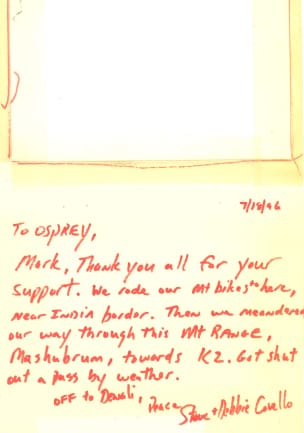 7/18/96
To OSPREY,
Mark, Thank you all for your
support. We rode our Mt bikes to here,
near INDIA border. Then we meandered
our way through this Mt RANGE,
Mashubrum, towards K2. Got shut
out a pass by weather.
OFF to Denali,
Peace
Steve + Debbie Covello